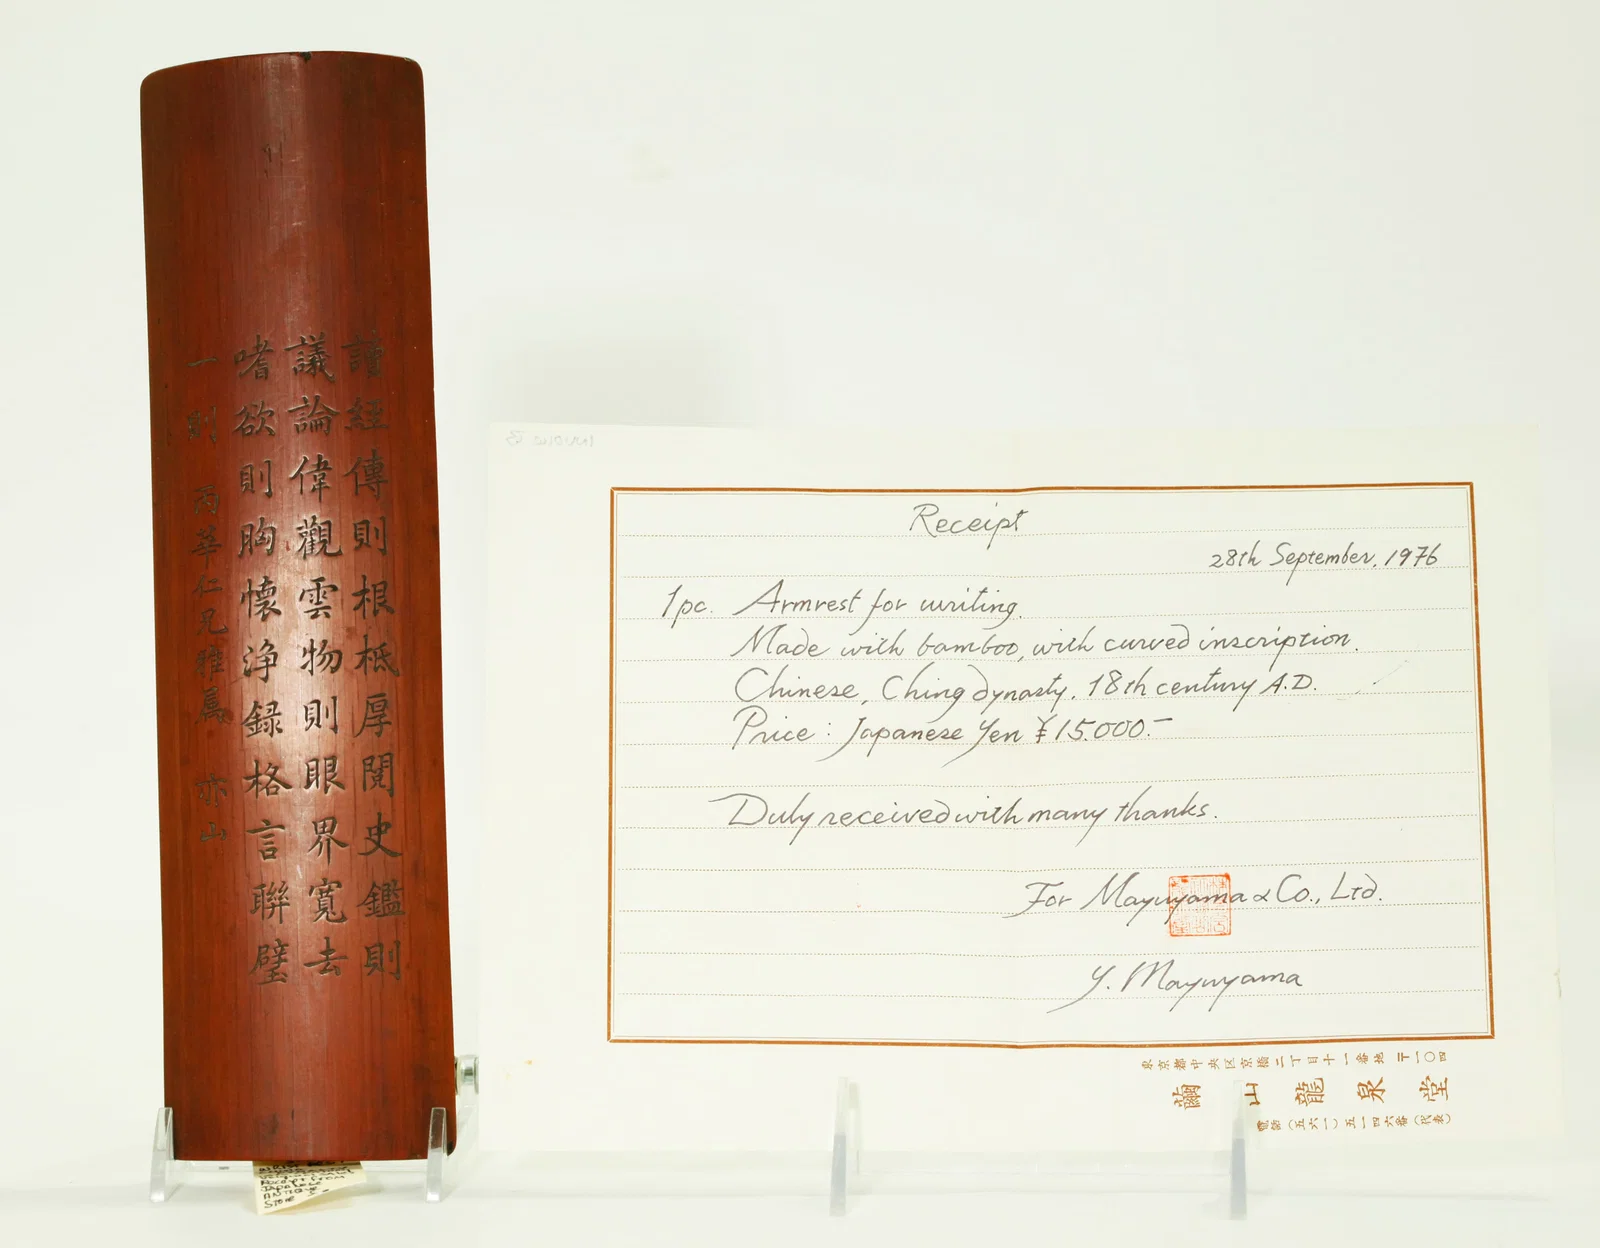 讀經傳則根柢厚閱史鑑則
議論偉觀雲物則眼界寬去
嗜欲則胸懷浄録格言聯璧
一則 丙華仁兄雅属 亦山
Receipt from
Japanese
Antique
Store
Receipt
28th September, 1976
1pc. Armrest for writing.
Made with bamboo, with curved inscription.
Chinese, Ching dynasty, 18th century A.D.
Price: Japanese Yen ¥15.000.-
Duly received with many thanks.
For Mayuyama & Co., Ltd.
Y. Mayuyama
東京都中央区京橋二丁目十一番地 〒一〇四
繭山龍泉堂
電話(五六一)五一四六番(代表)